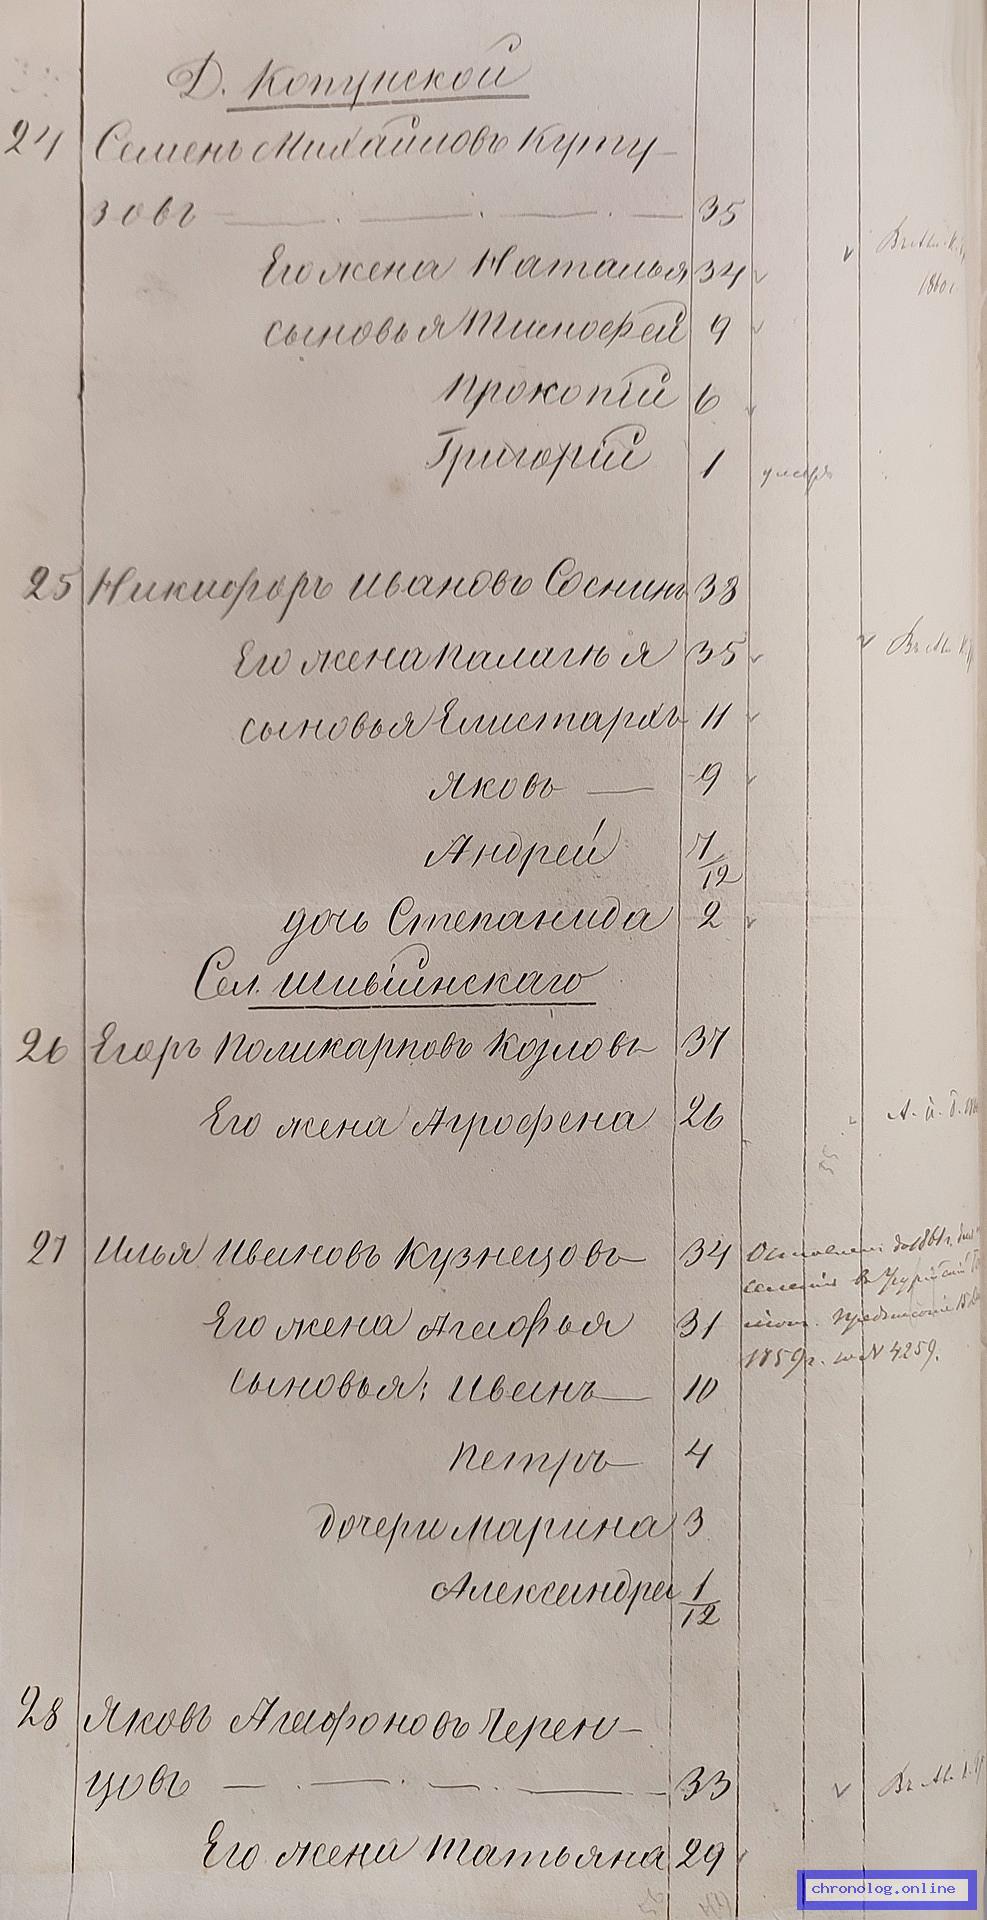 Д. Копунской
24 Семенъ Михайловъ Курту-
зовъ 35
Его жена Наталья 34
сыновья Тимофей 9
Прокопій 6
Григорій 1 умеръ
1860 г
25 Никифоръ Ивановъ Соснинъ 38
Его жена Палагѣя 35
сыновья Елистархъ 11
Яковъ — 9
Андрей 7/12
дочь Степанида 2
Сел. Шивіинскаго
26 Егоръ Поликарповъ Козловъ 37
Его жена Агрофена 26
27 Илья Ивановъ Кузнецовъ 34
Его жена Агафья 31
1859 г. за N 4259.
сыновья: Иванъ 10
Петръ 4
дочери Марина 3
Александра 1/12
28 Яковъ Агафоновъ Черен-
цовъ 33
Его жена Татьяна 29
chronolog.online